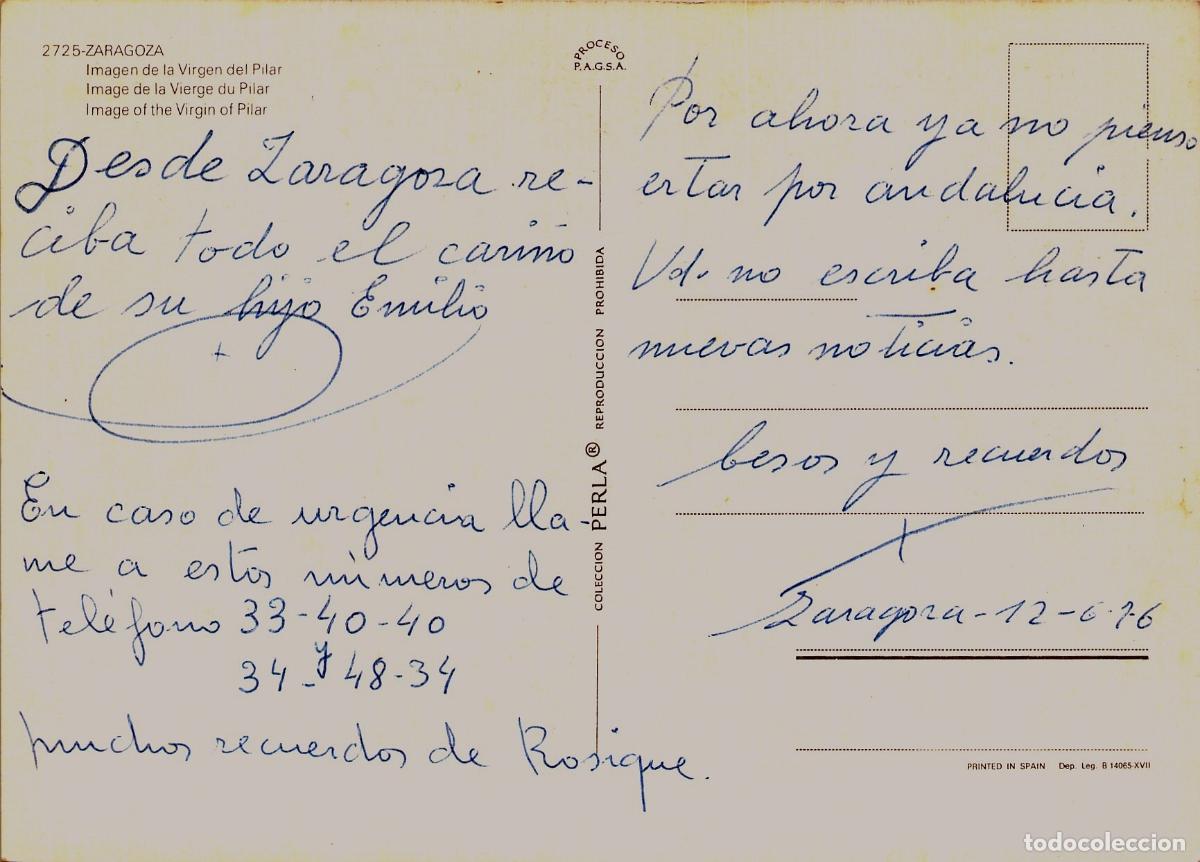 2725-ZARAGOZA
Imagen de la Virgen del Pilar
Image de la Vierge du Pilar
Image of the Virgin of Pilar
Desde Zaragoza re-
ciba todo el cariño
de su hijo Emilio
En caso de urgencia lla-
me a estos números de
teléfono 33-40-40
y
34-48-34
muchos recuerdos de Rosique.
PROCESO
P.A.G.S.A.
COLECCION PERLA® REPRODUCCION PROHIBIDA
Por ahora ya no pienso
estar por andalucia.
Vd. no escriba hasta
nuevas noticias.
besos y recuerdos
Zaragoza-12-6-76
PRINTED IN SPAIN Dep. Leg. B 14065-XVII
todocoleccion